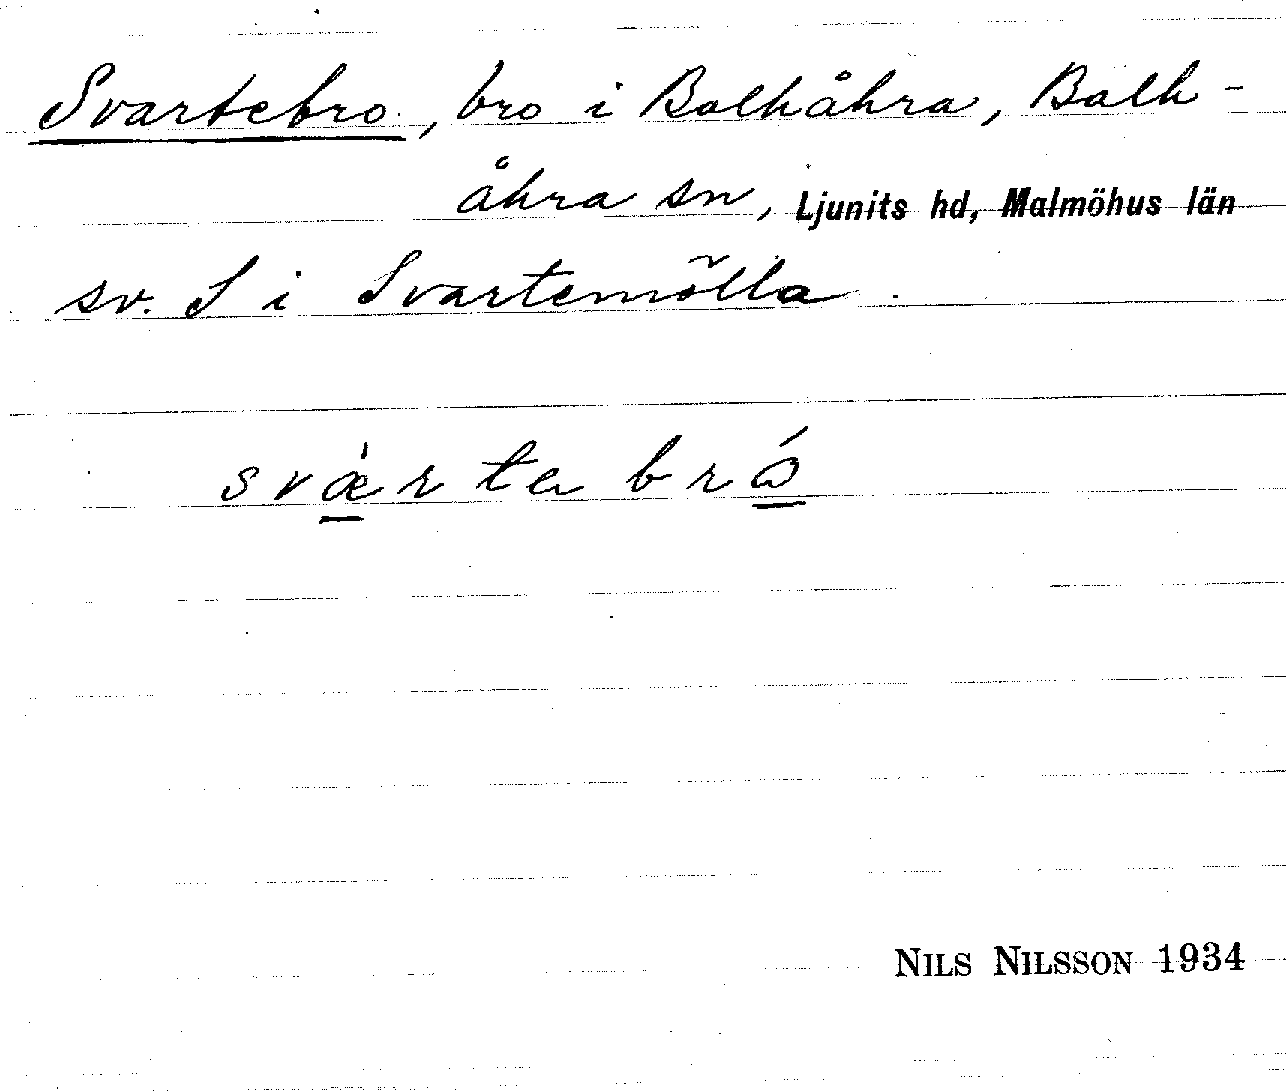 Svartebro, bro i Balkåkra, Balk-
åkra sn, Ljunits hd, Malmöhus län
sv. S i Svartemölla.
svær ta bró
NILS NILSSON 1934